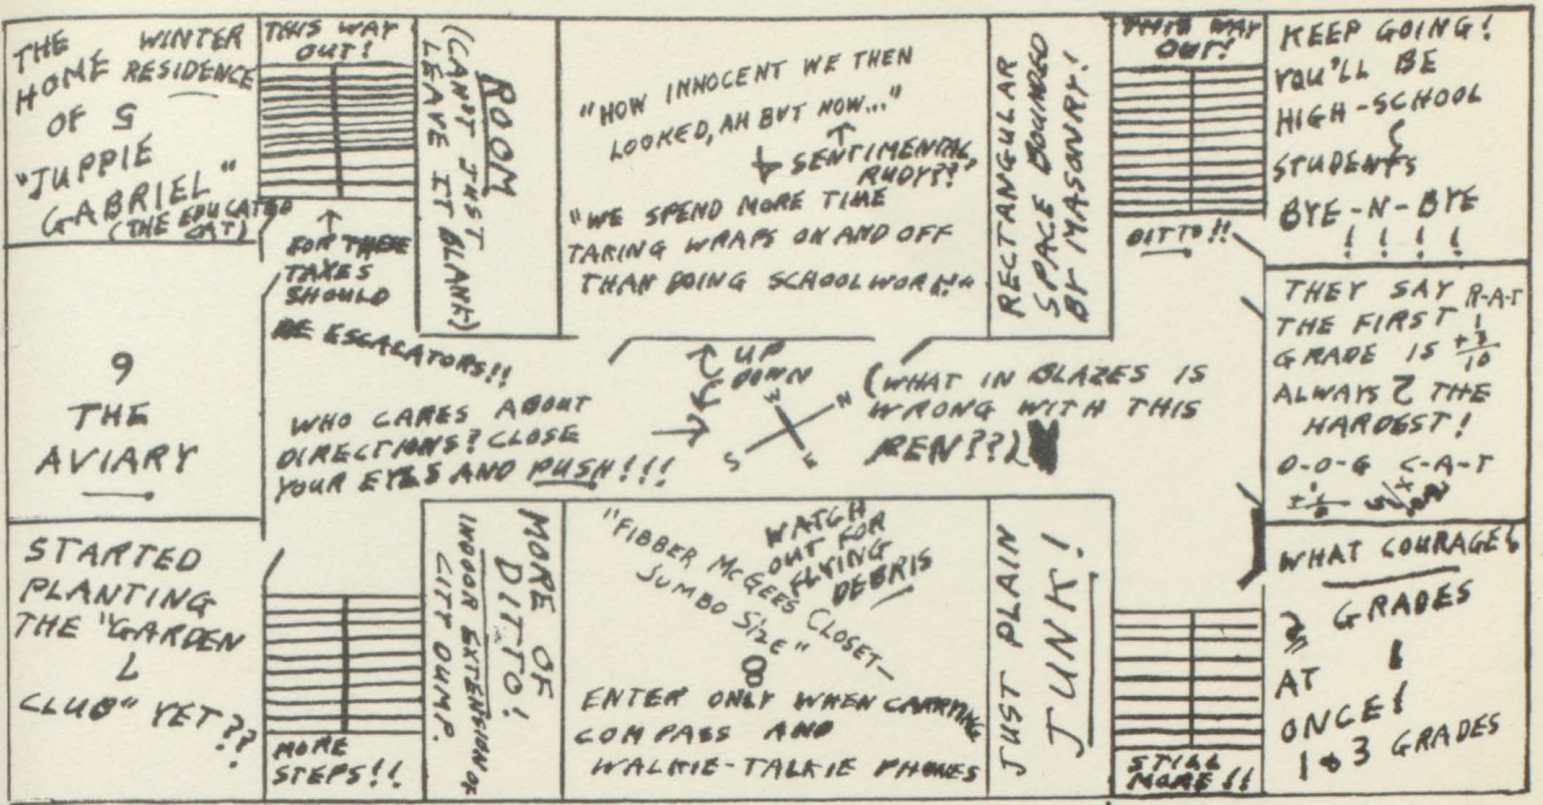 THE WINTER
HOME RESIDENCE
OF 5
"JUPPIE
GABRIEL"
(THE EDUCATED
CAT)
THIS WAY
OUT!
ROOM
(CAN'T JUST
LEAVE IT BLANK)
"HOW INNOCENT WE THEN
LOOKED, AH BUT NOW..."
SENTIMENTAL,
RUDY??
"WE SPEND MORE TIME
TAKING WRAPS ON AND OFF
THAN DOING SCHOOLWORK!"
RECTANGULAR
SPACE BOUNDED
BY MASONRY!
THIS WAY
OUT!
KEEP GOING!
YOU'LL BE
HIGH-SCHOOL
STUDENTS
BYE-N-BYE
! ! ! !
FOR THESE
TAXES
SHOULD
BE ESCALATORS!!
DITTO!!
6
THE
AVIARY
WHO CARES ABOUT
DIRECTIONS? CLOSE
YOUR EYES AND PUSH!!!
UP
DOWN
W N
S E
(WHAT IN BLAZES IS
WRONG WITH THIS
PEN??)
THEY SAY R-A-T
THE FIRST 1
GRADE IS +3
10
ALWAYS 2 THE
HARDEST!
D-O-G C-A-T
STARTED
PLANTING
THE "GARDEN
CLUB" YET??
MORE
STEPS!!
MORE OF
DITTO!
INDOOR EXTENSION OF
CITY DUMP.
"FIBBER McGEES CLOSET—
JUMBO SIZE"
WATCH
OUT FOR
FLYING
DEBRIS
8
ENTER ONLY WHEN CARRYING
COMPASS AND
WALKIE-TALKIE PHONES
JUST PLAIN
JUNK!
STILL
MORE!!
WHAT COURAGE!
2 GRADES
1
AT
ONCE!
1 & 3 GRADES